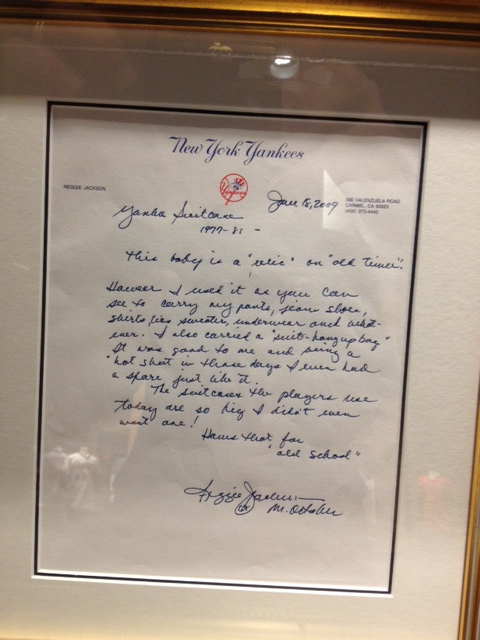 New York Yankees
REGGIE JACKSON
CARMEL, CA 93923
June 18, 2009
Yankee Suitcase
1977-81 -
This baby is a "relic" on "old timer".
However I used it as you can
see to carry my pants, jeans shoes,
shirts, ties sweater, underwear and what-
ever. I also carried a "suit-hangup bag"
It was good to me and being a
"hot shot" in those days I even had
a spare just like it.
The suitcases the players use
today are so big I didn't even
want one!
Haws that for
"old school"
Reggie Jackson
Mr. October